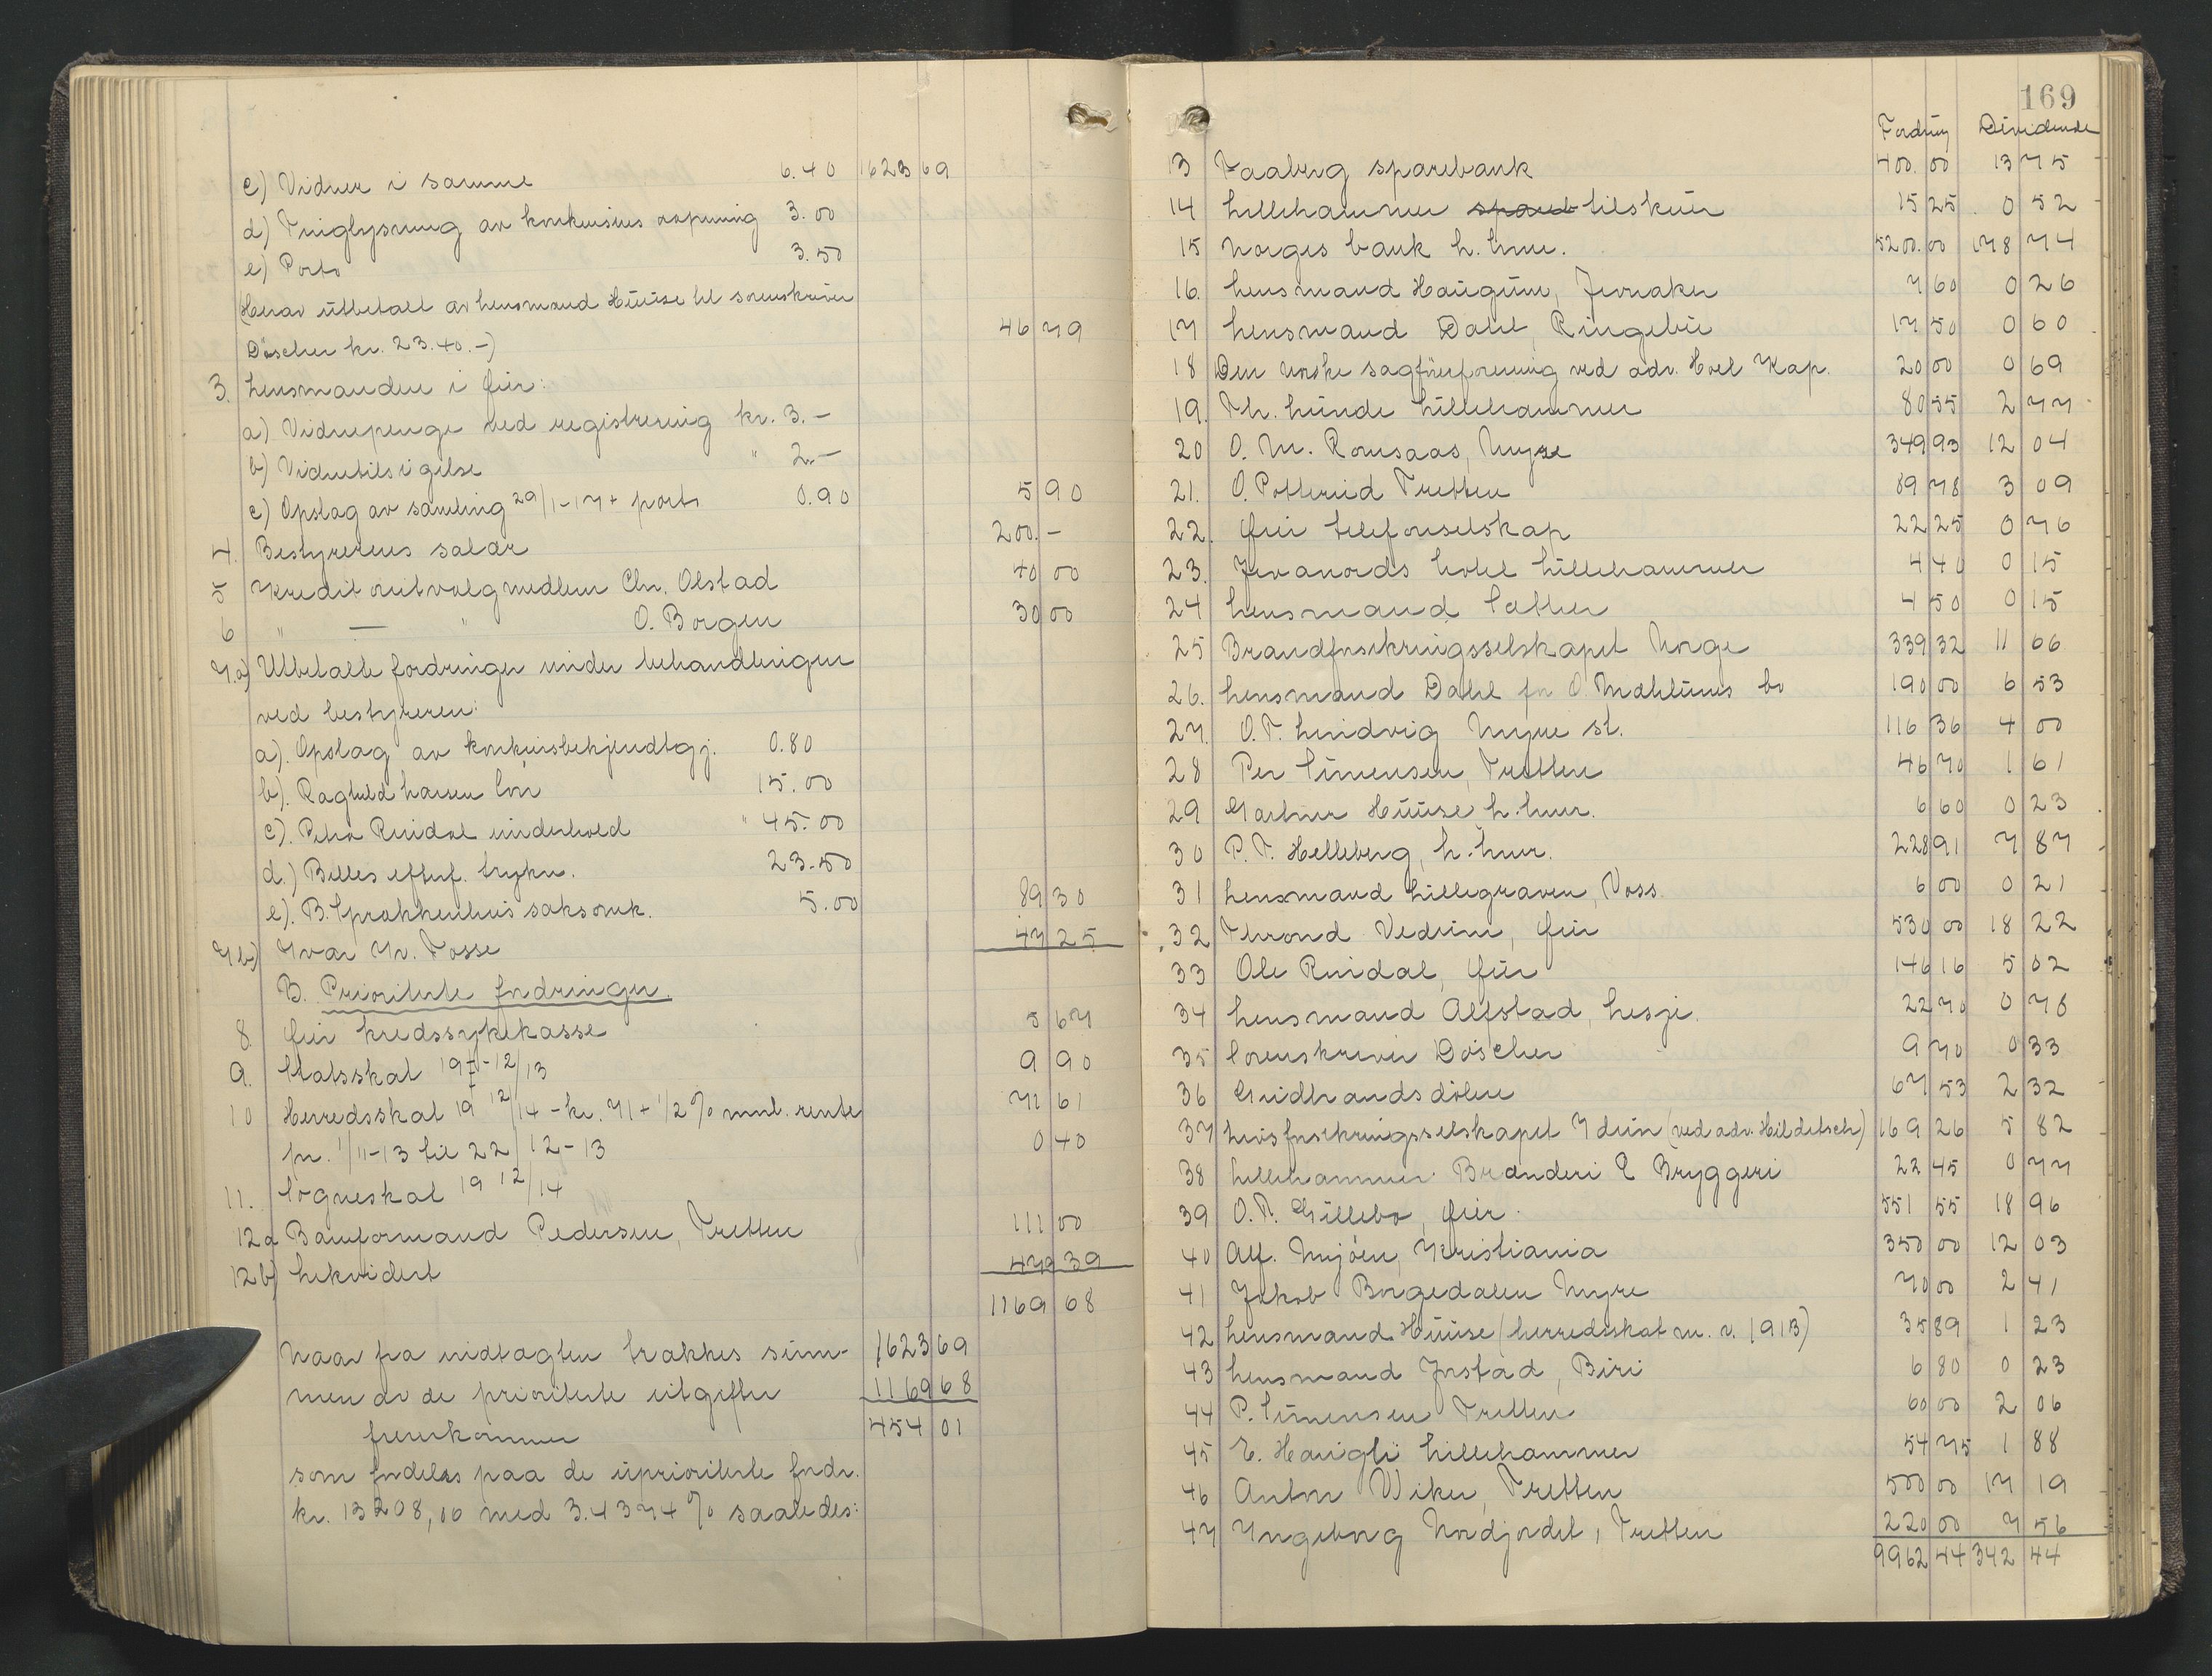 c) Vidner i samme 6.40 1623 69
d) Tinglysning av konkursens aapning 3.00
e) Porto 3.50
(Herav utbetalt av lensmand Huuse til sorenskriver
Döscher kr. 23.40.-) 46 79
3. Lensmanden i Øier:
a) Vidnepenge ved registrering kr. 3.-
b) Vidnetilsigelse " 2.-
c) Opslag av samling 29/1-17 + porto 0.90 5 90
4. Bestyrerens salær 200.-
5 Kreditorutvalgmedlem Chr. Olstad 40 00
6 " — " O. Borgen 30 00
7.a) Utbetalte fordringer under behandlingen
ved bestyreren:
a). Opslag av konkursbekjendtgj. 0.80
b). Ragnhild Larsen lön 15.00
c). Petra Rindal underhold " 45.00
d.) Billes efterf. trykn. 23.50
e). B. Sprakkenhus saksomk. 5.00 89 30
7b) Ivar Kr. Fosse 47 25
B. Prioriterte fordringer.
8. Øier kredssykekasse 5 67
9. Statsskat 19 12/13 9 90
10 Herredsskat 19 12/14 - kr. 71 + 1/2 % mnl. rente 71 61
fr. 1/11-13 til 22/12-13 0 40
11. Sogneskat 19 12/14
12a Baneformand Pedersen, Tretten 111 00
12b) Likvidert 472 39
1169 68
Naar fra indtagten trækkes sum- 1623 69
men av de prioriterte utgifter 1169 68
fremkommer 454 01
som fordeles paa de uprioriterte fordr.
kr. 13208,00 med 3.4374 % saaledes:
169
Fordring Dividende
13 Faaberg sparebank 400.00 13 75
14 Lillehammer spareb tilskuer 15 25 0 52
15 Norges bank L.hmr. 5200.00 178 74
16. Lensmand Haugum, Jevnaker 7 60 0 26
17 Lensmand Dahl Ringebu 17 50 0 60
18 Den norske sagførerforening ved adv. Hoel Kap. 20 00 0 69
19. Th. Lunde Lillehammer 80 55 2 77
20 O. M. Romsaas, Myre 349 93 12 04
21. O. Potterud Tretten 89 78 3 09
22. Øier telefonselskap 22 25 0 76
23. Jevanords hotel Lillehammer 4 40 0 15
24 Lensmand Sæther 4 50 0 15
25 Brandforsikringsselskapet Norge 339 32 11 66
26. Lensmand Dahl for O. Mæhlums bo 190 00 6 53
27. O. T. Lindvig Myre st. 116 36 4 00
28 Per Simensen, Tretten 46 70 1 61
29 Gartner Huuse L.hmr. 6 60 0 23
30 P. T. Helleberg, L.hmr. 228 91 7 87
31 Lensmand Lillegraven, Voss. 6 00 0 21
32 Thrond Vedum, Øier 530 00 18 22
33 Ole Rindal, Øier 146 16 5 02
34 Lensmand Alfstad, Lesje. 22 70 0 78
35 Sorenskriver Döscher 9 70 0 33
36 Gudbrandsdölen 67 53 2 32
37 Livsforsikringsselskapet Idun (ved adv. Hilditsch) 169 26 5 82
38 Lillehammer Brænderi & Bryggeri 22 45 0 77
39 O. P. Gillebo, Øier. 551 55 18 96
40 Alf. Mjöen, Kristiania 350 00 12 03
41 Jakob Borgedalen Myre 70 00 2 41
42 Lensmand Huuse (herredsskat m. v. 1913) 35 89 1 23
43 Lensmand Jnstad, Biri 6 80 0 23
44 P. Simensen Tretten 60 00 2 06
45 E. Haugli Lillehammer 54 75 1 88
46 Anton Wiker, Tretten 500 00 17 19
47 Ingeborg Nordjordet, Tretten 220 00 7 56
9962 44 342 44